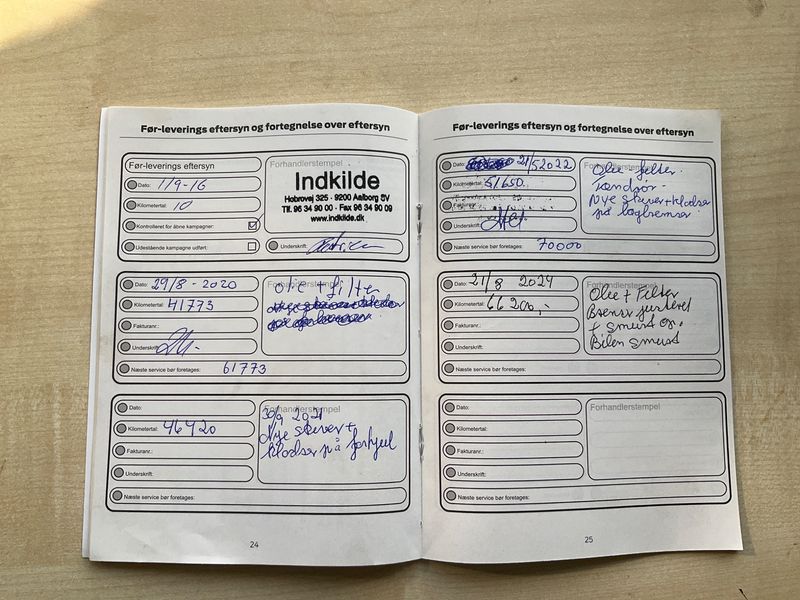 Før-leverings eftersyn og fortegnelse over eftersyn
Før-leverings eftersyn
Forhandlerstempel
Dato: 1/9-16
Kilometertal: 10
Kontrolleret for åbne kampagner:
Udestående kampagne udført:
Indkilde
Hobrovej 325 - 9200 Aalborg SV
Tlf. 96 34 90 00 - Fax 96 34 90 09
www.indkilde.dk
Underskrift:
Dato: 29/8 - 2020
Kilometertal: 41773
Fakturanr.:
Underskrift:
Næste service bør foretages: 61773
Forhandlerstempel
Olie + filter
Dato:
Kilometertal: 46920
Fakturanr.:
Underskrift:
Næste service bør foretages:
Forhandlerstempel
30/9 2021
Nye skiver +
klodser på forhjul
24
Før-leverings eftersyn og fortegnelse over eftersyn
Dato: 21/5 2022
Kilometertal: 51650
Fakturanr.:
Underskrift:
Næste service bør foretages: 70000
Forhandlerstempel
Olie - filter.
Tændrør.
Nye skiver + klodser
på bagbremser
Dato: 21/8 2024
Kilometertal: 66200,-
Fakturanr.:
Underskrift:
Næste service bør foretages:
Forhandlerstempel
Olie + Filter
Bremser justeret
+ smurt op.
Bilen smurt
Dato:
Kilometertal:
Fakturanr.:
Underskrift:
Næste service bør foretages:
Forhandlerstempel
25